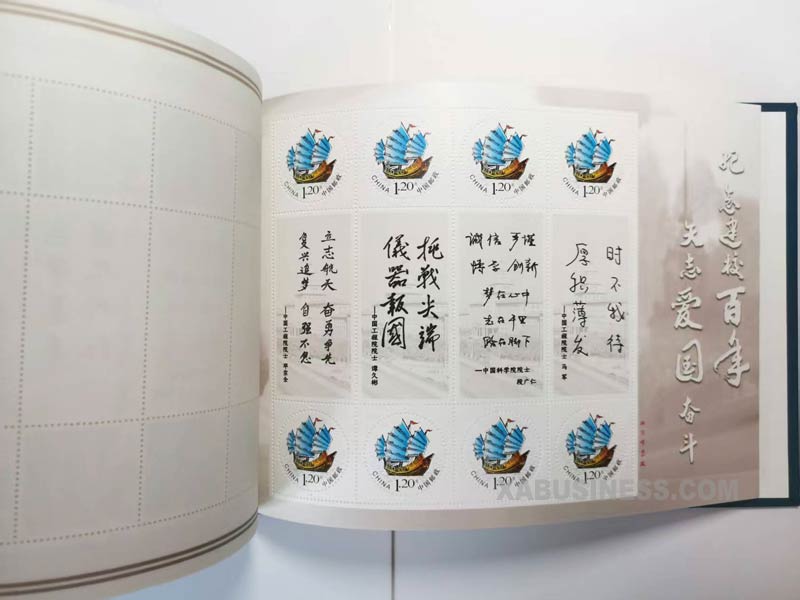 CHINA 1.20元 中国邮政
CHINA 1.20元 中国邮政
CHINA 1.20元 中国邮政
CHINA 1.20元 中国邮政
立志航天 奋勇争先
复兴追梦 自强不息
—中国工程院院士
挑戰尖端
儀器報國
—中国工程院院士 谭久彬
诚信 严谨
创新
梦在心中
志在千里
路在脚下
—中国科学院院士
段广仁
时不我待
厚积薄发
—中国工程院院士 马军
CHINA 1.20元 中国邮政
CHINA 1.20元 中国邮政
CHINA 1.20元 中国邮政
CHINA 1.20元 中国邮政
纪念建校百年
矢志爱国奋斗
XABUSINESS.COM